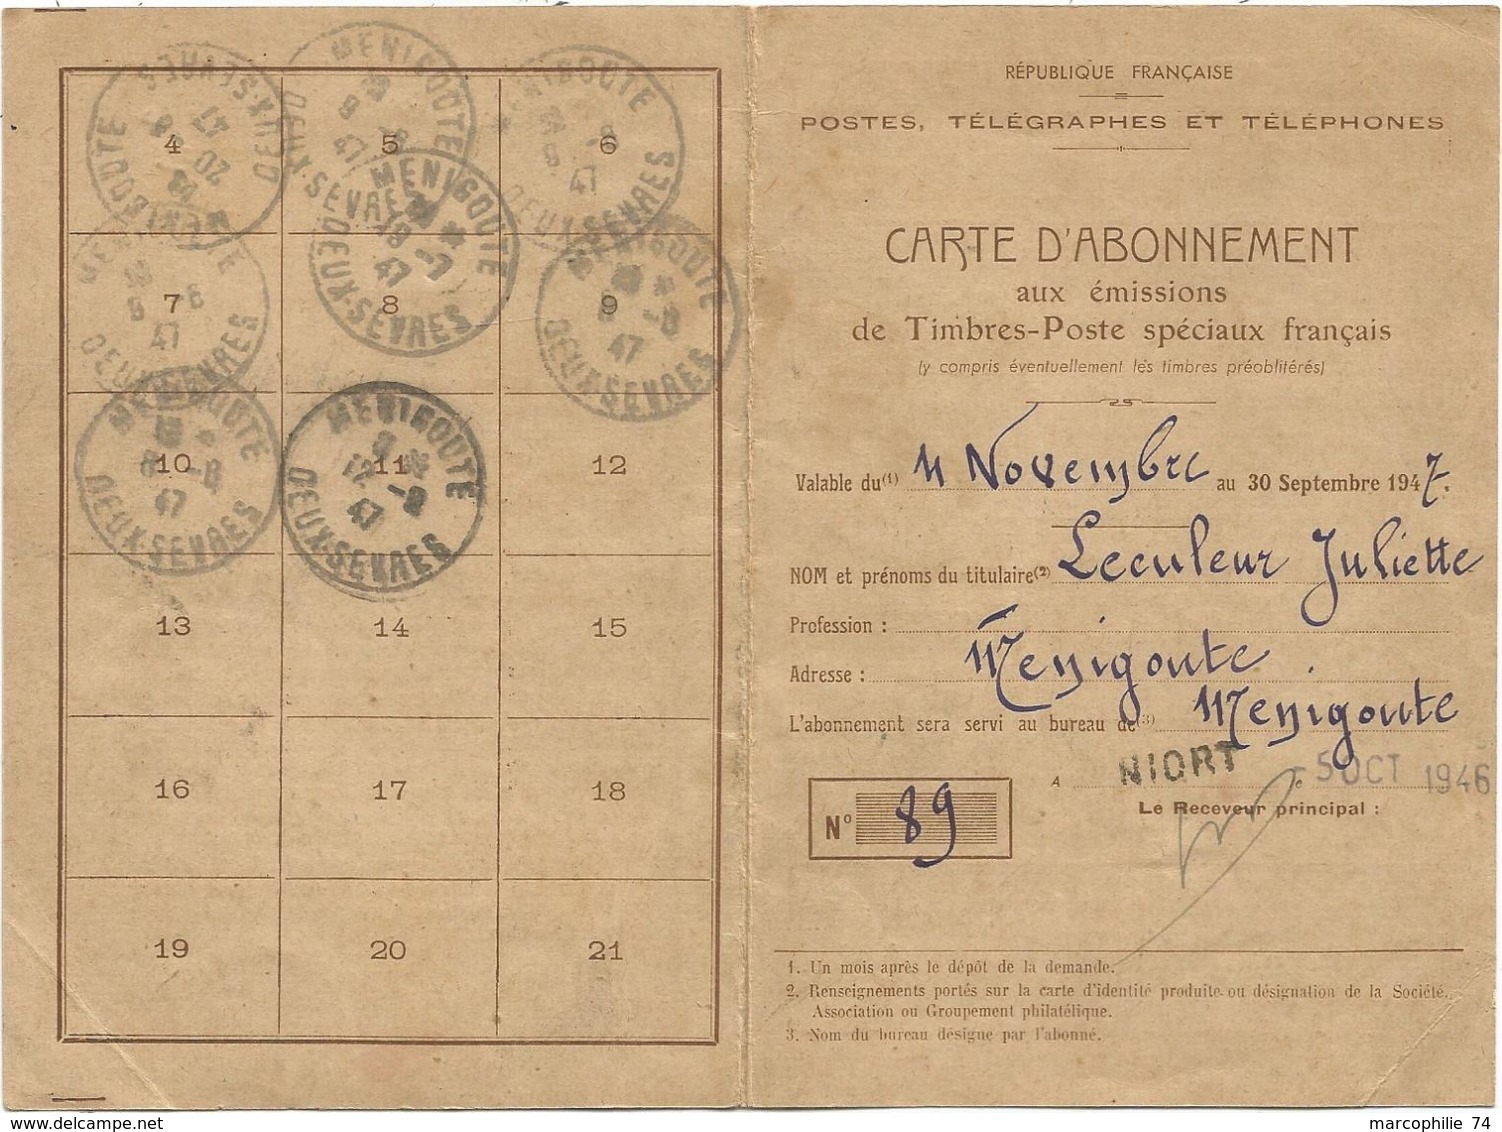 4 5 6
7 8 9
10 11 12
13 14 15
16 17 18
19 20 21
MENIGOUTE
DEUX-SEVRES
MENIGOUTE
DEUX-SEVRES
MENIGOUTE
DEUX-SEVRES
MENIGOUTE
19 -7
47
DEUX-SEVRES
MENIGOUTE
8 -8
47
DEUX-SEVRES
MENIGOUTE
8 -8
47
DEUX-SEVRES
MENIGOUTE
8 -8
47
DEUX-SEVRES
MENIGOUTE
12 -9
47
DEUX-SEVRES
RÉPUBLIQUE FRANÇAISE
POSTES, TÉLÉGRAPHES ET TÉLÉPHONES
CARTE D'ABONNEMENT
aux émissions
de Timbres-Poste spéciaux français
(y compris éventuellement les timbres préoblitérés)
Valable du(1) 4 Novembre au 30 Septembre 1947.
NOM et prénoms du titulaire(2) Leculeur Juliette
Profession :
Adresse : Menigoute
L'abonnement sera servi au bureau de(3) Menigoute
A NIORT le -5 OCT 1946
Le Receveur principal :
N° 89
1. Un mois après le dépôt de la demande.
2. Renseignements portés sur la carte d'identité produite ou désignation de la Société,
Association ou Groupement philatélique.
3. Nom du bureau désigne par l'abonné.
marcophilie 74
Delcampe.net